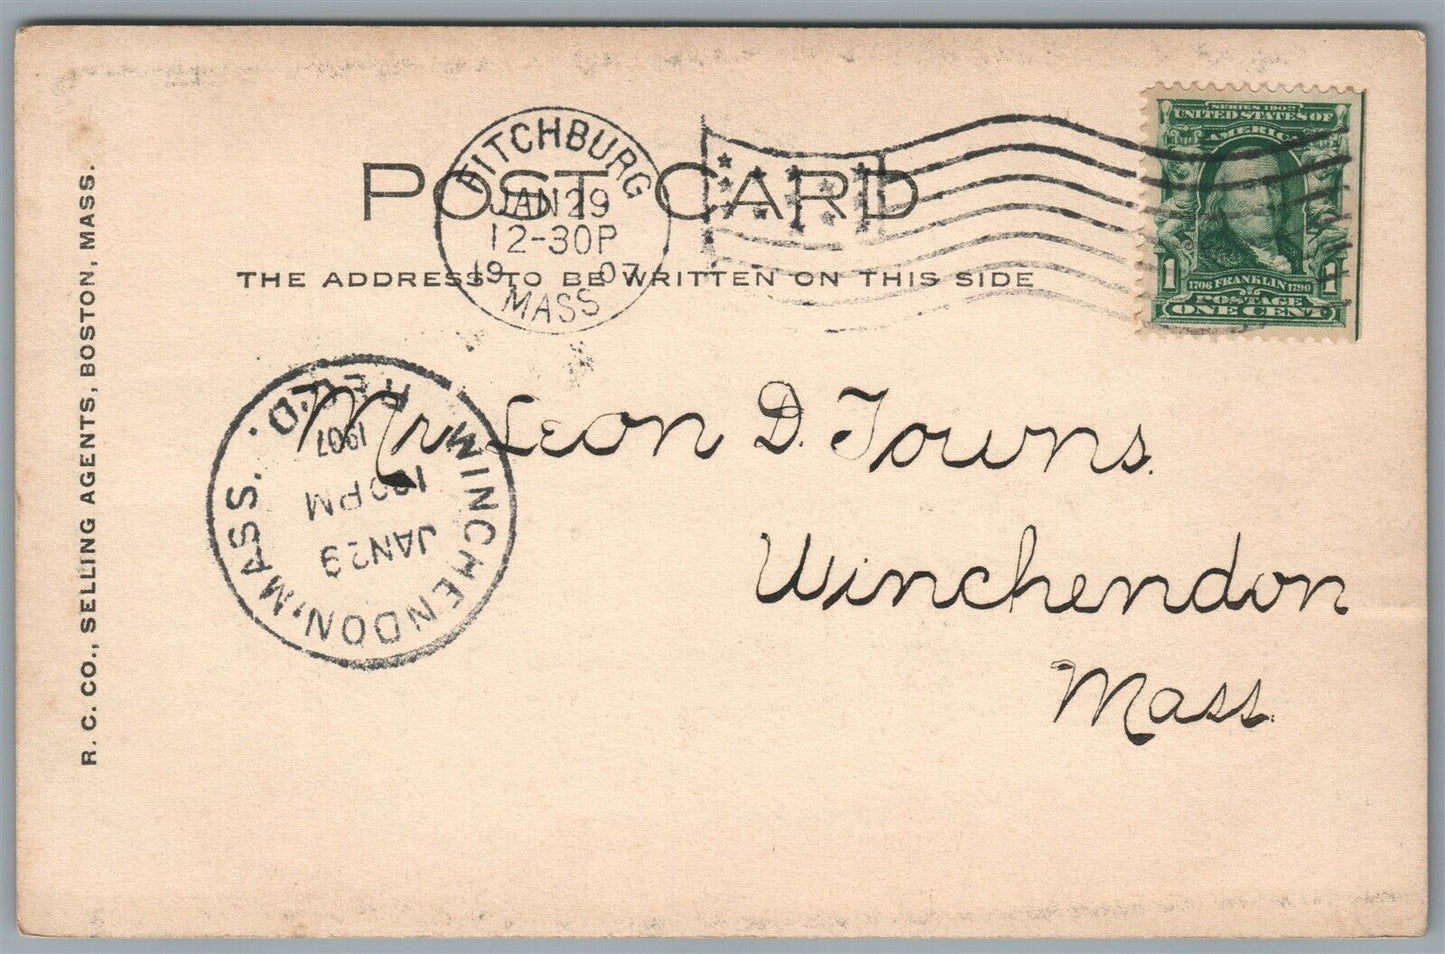 POST CARD
THE ADDRESS TO BE WRITTEN ON THIS SIDE
FITCHBURG
JAN 29
12-30P
19 07
MASS
SERIES 1902
UNITED STATES OF
AMERICA
1 1
1706 FRANKLIN 1790
POSTAGE
ONE CENT
WINCHENDON, MASS.
REC'D.
1907
1 00 PM
JAN 29
Mr. Leon D. Towns.
Winchendon
Mass.
R. C. CO., SELLING AGENTS, BOSTON, MASS.